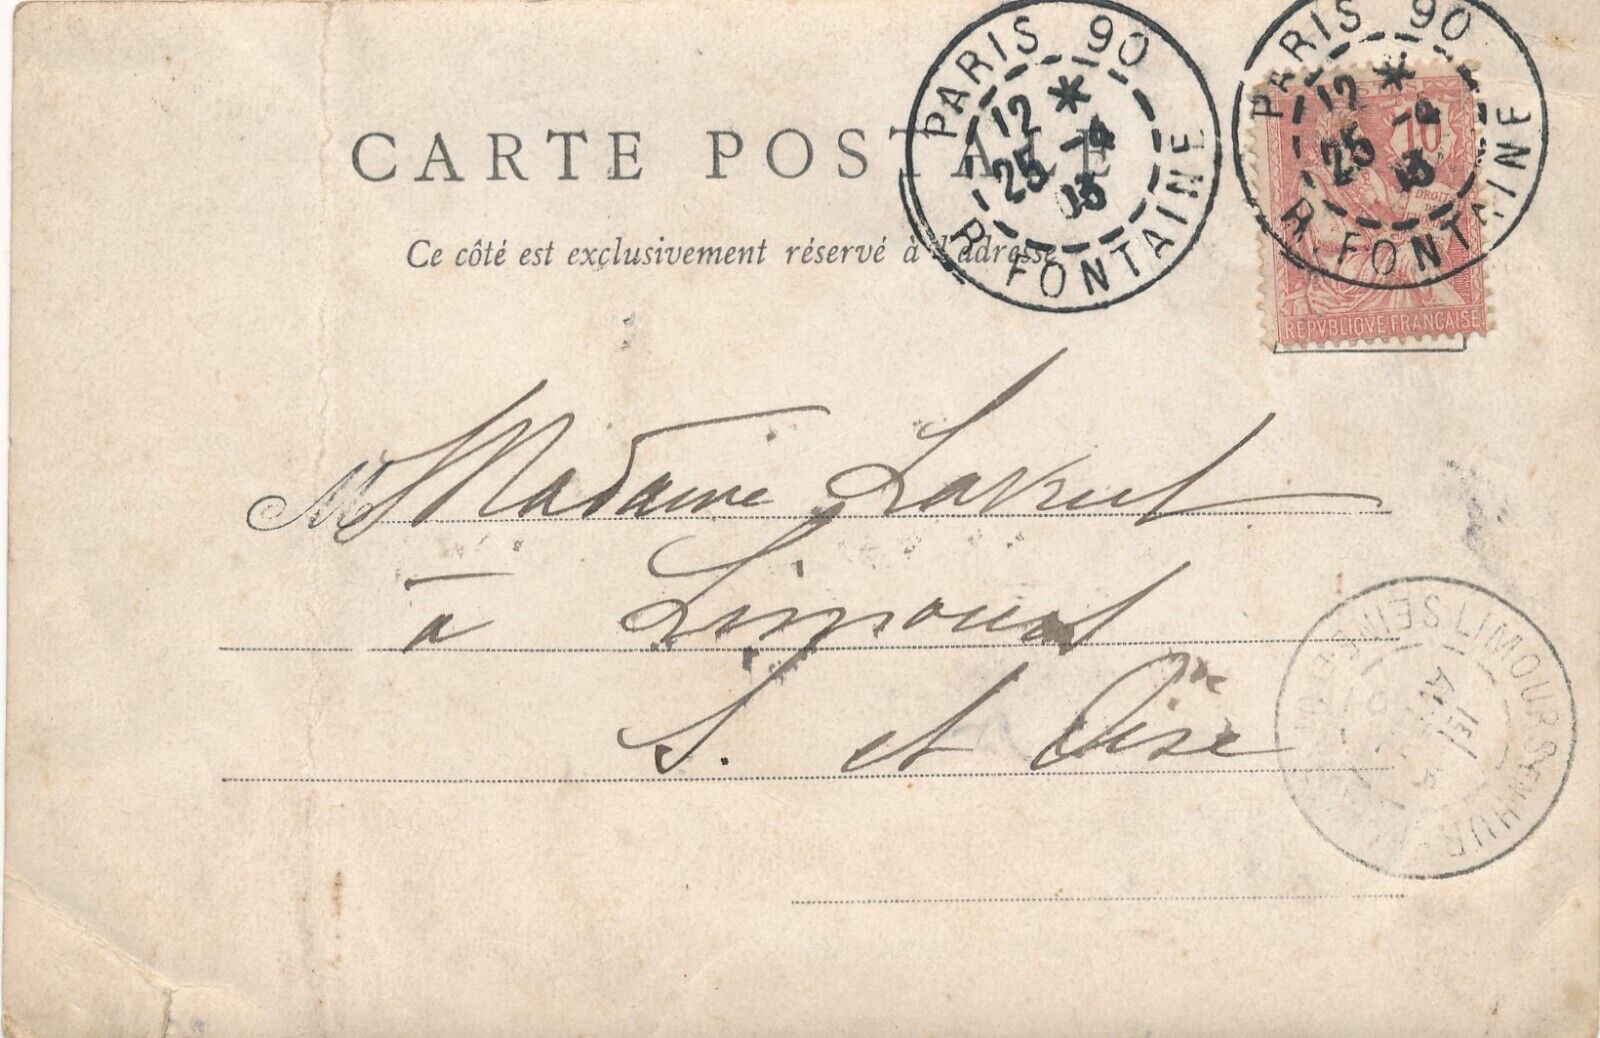 PARIS 90
12 * 25 -4 03
R. FONTAINE
PARIS 90
12 * 25 -4 03
R. FONTAINE
10
DROITS DE
REPVBLIQVE FRANÇAISE
CARTE POSTALE
Ce côté est exclusivement réservé à l'adresse
M Madame
à Limours
S. et Oise
LIMOURS EN HUR
SEINE